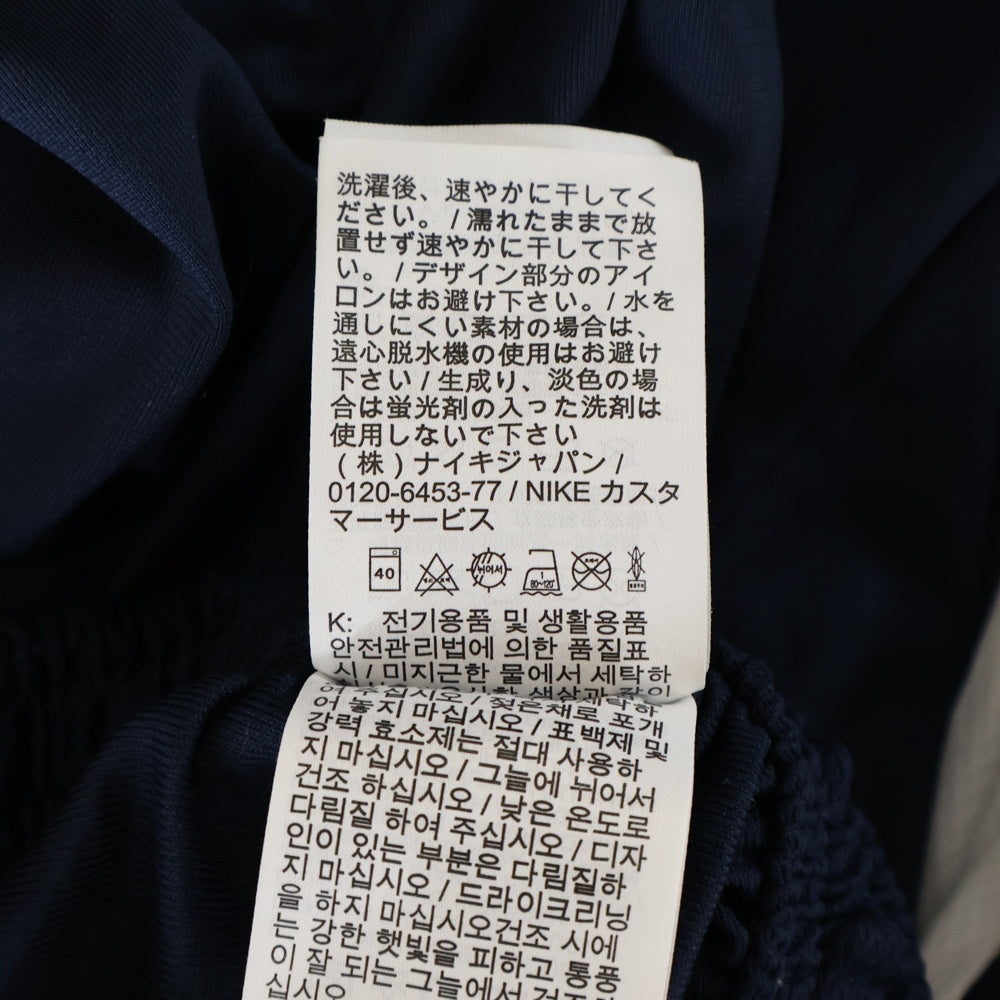 洗濯後、速やかに干してく
ださい。/ 濡れたままで放
置せず速やかに干して下さ
い。 / デザイン部分のアイ
ロンはお避け下さい。/ 水を
通しにくい素材の場合は、
遠心脱水機の使用はお避け
下さい / 生成り、淡色の場
合は蛍光剤の入った洗剤は
使用しないで下さい
(株)ナイキジャパン /
0120-6453-77 / NIKE カスタ
マーサービス
40 뉘어서 1 80~120°
K: 전기용품 및 생활용품
안전관리법에 의한 품질표
시 / 미지근한 물에서 세탁하
여 주십시오 색상과 같이
어 놓지 마십시오 / 젖은채로 포개
표백제 및
강력 효소제는 절대 사용하
지 마십시오 / 그늘에 뉘어서
건조 하십시오 / 낮은 온도로
다림질 하여 주십시오 / 디자
인이 있는 부분은 다림질하
지 마십시오 / 드라이크리닝
을 하지 마십시오건조 시에
는 강한 햇빛을 피하고 통풍
이 잘 되는 그늘에서
십시오